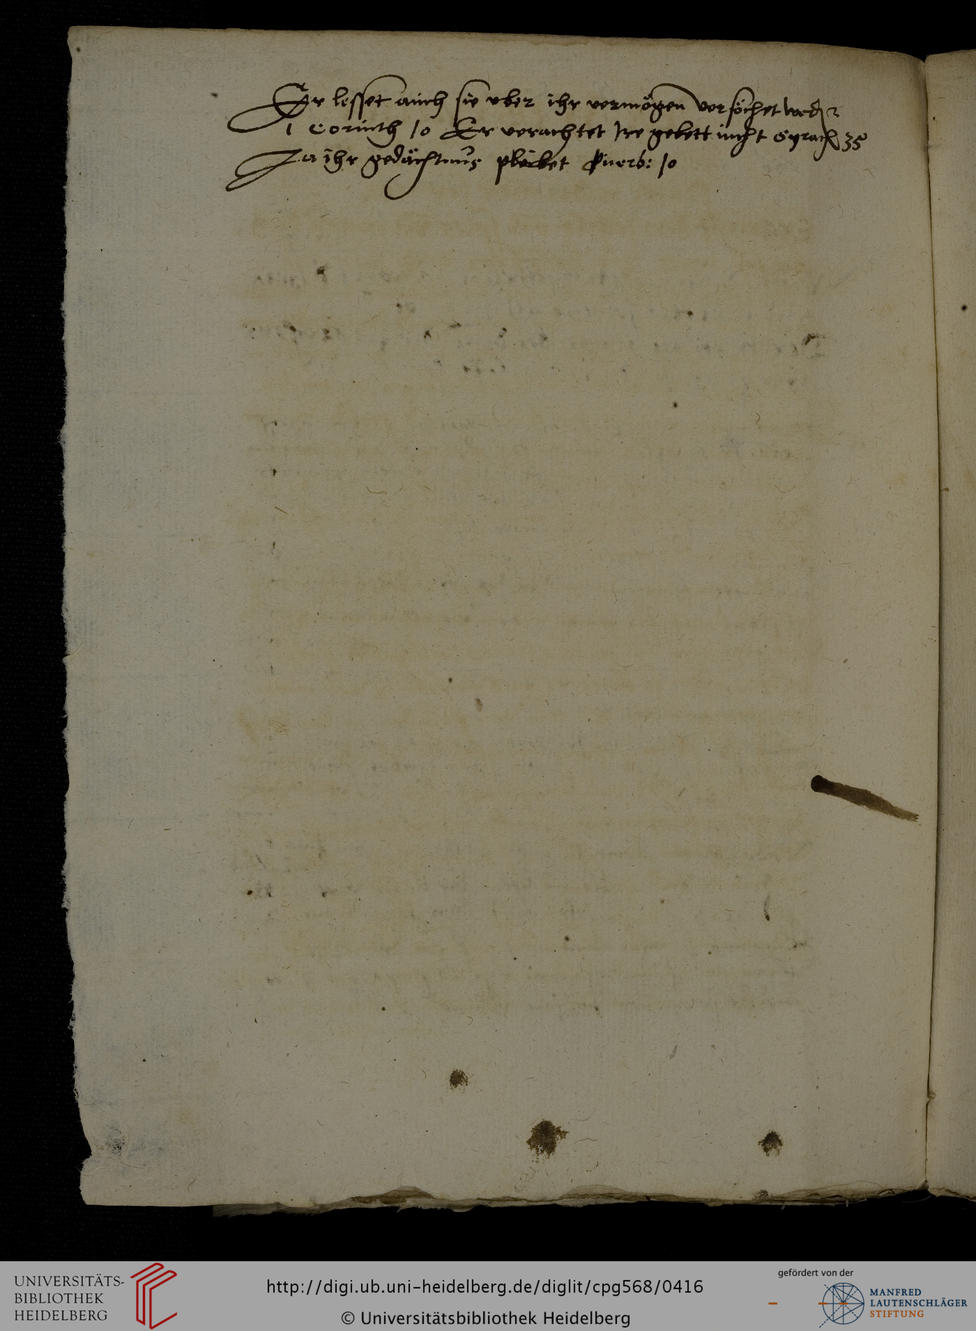 Er lesset auch sie vber ihr vermögen versöchet werdē
1 Corinth 10 Er verachtet Ire gebett nicht Syrach 35
Ja ihr gedächtnus pleibet Prverb: 10
UNIVERSITÄTS-
BIBLIOTHEK
HEIDELBERG
http://digi.ub.uni-heidelberg.de/diglit/cpg568/0416
© Universitätsbibliothek Heidelberg
gefördert von der
MANFRED
LAUTENSCHLÄGER
STIFTUNG